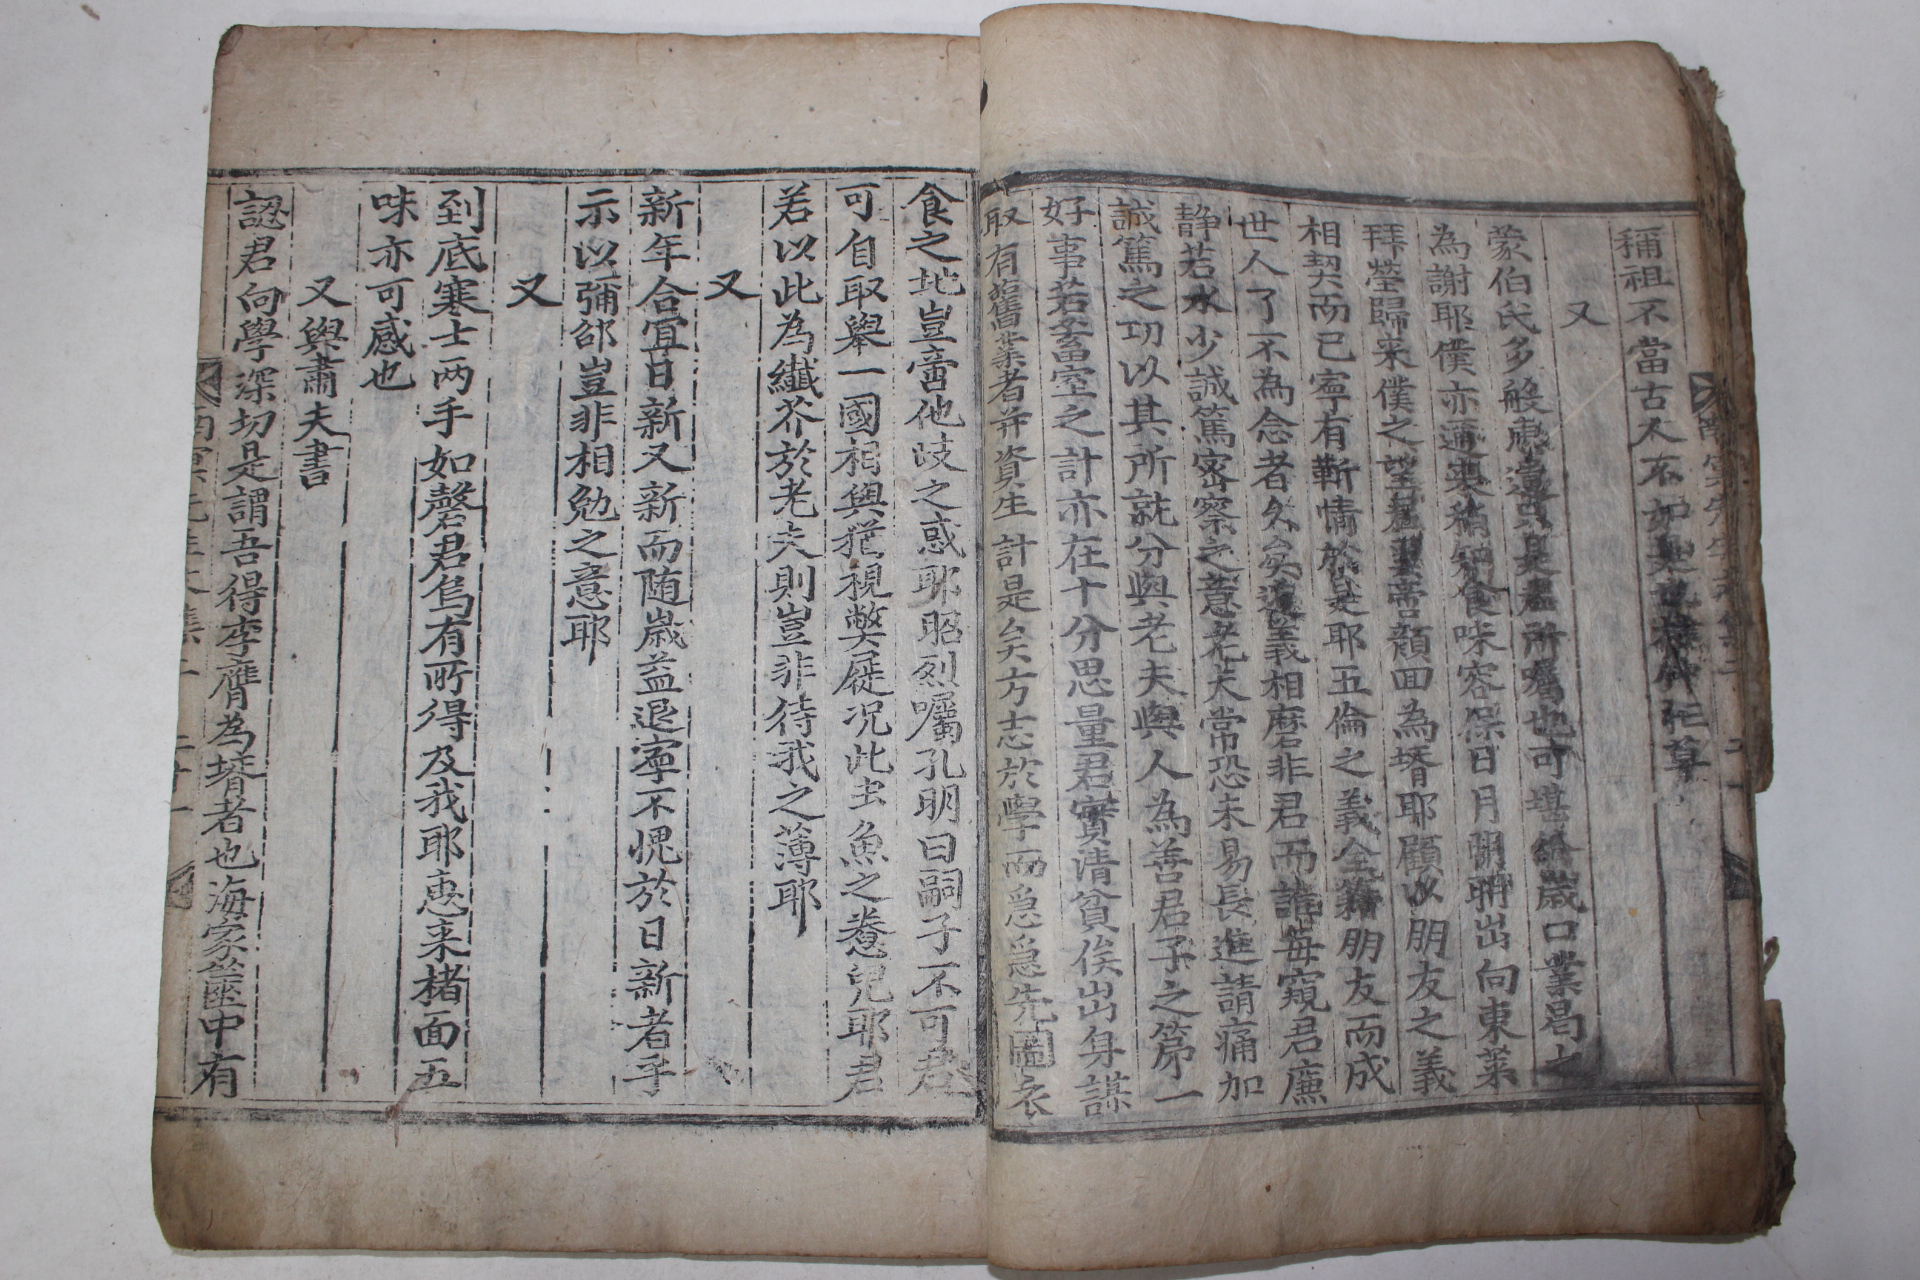 稱祖不當古人不如是也 尊
又
蒙伯氏多般 是君所囑也可堪 歲口業曷之
為謝耶僕亦 食味容保日月開 出向東萊
拜塋歸來僕之望 顔面為壻耶顧以朋友之義
相契而已寧有靳情於是耶五倫之義全籍朋友而成
世人了不為念者久矣 義相磨非君而誰每窺君廉
静若水少誠篤密察之意老夫常恐未易長進請痛加
誠篤之功以其所就分與老夫與人為善君子之第一
好事若畜室之計亦在十分思量君實清貧俟出身謀
取有舊業者并資生計是矣方志於學而急急先圖衣
食之地豈啻他歧之惑耶昭烈囑孔明曰嗣子不可君
可自取舉一國相與猶視弊屣况此虫魚之養兒耶君
若以此為纖芥於老夫則豈非待我之薄耶
又
新年合宜日新又新而随歲益退寧不愧於日新者乎
示以彌邵豈非相勉之意耶
又
到底寒士两手如磬君烏有所得及我耶惠来楮面五
味亦可感也
又與肅夫書
認君向學深切是謂吾得李膺為壻者也海家 中有
南冥先生文集二 二十一